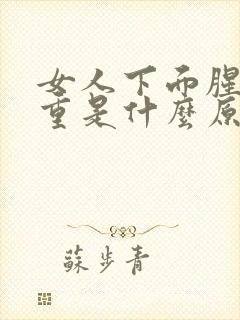 女人下而腥
重是什麼原
蘇步青